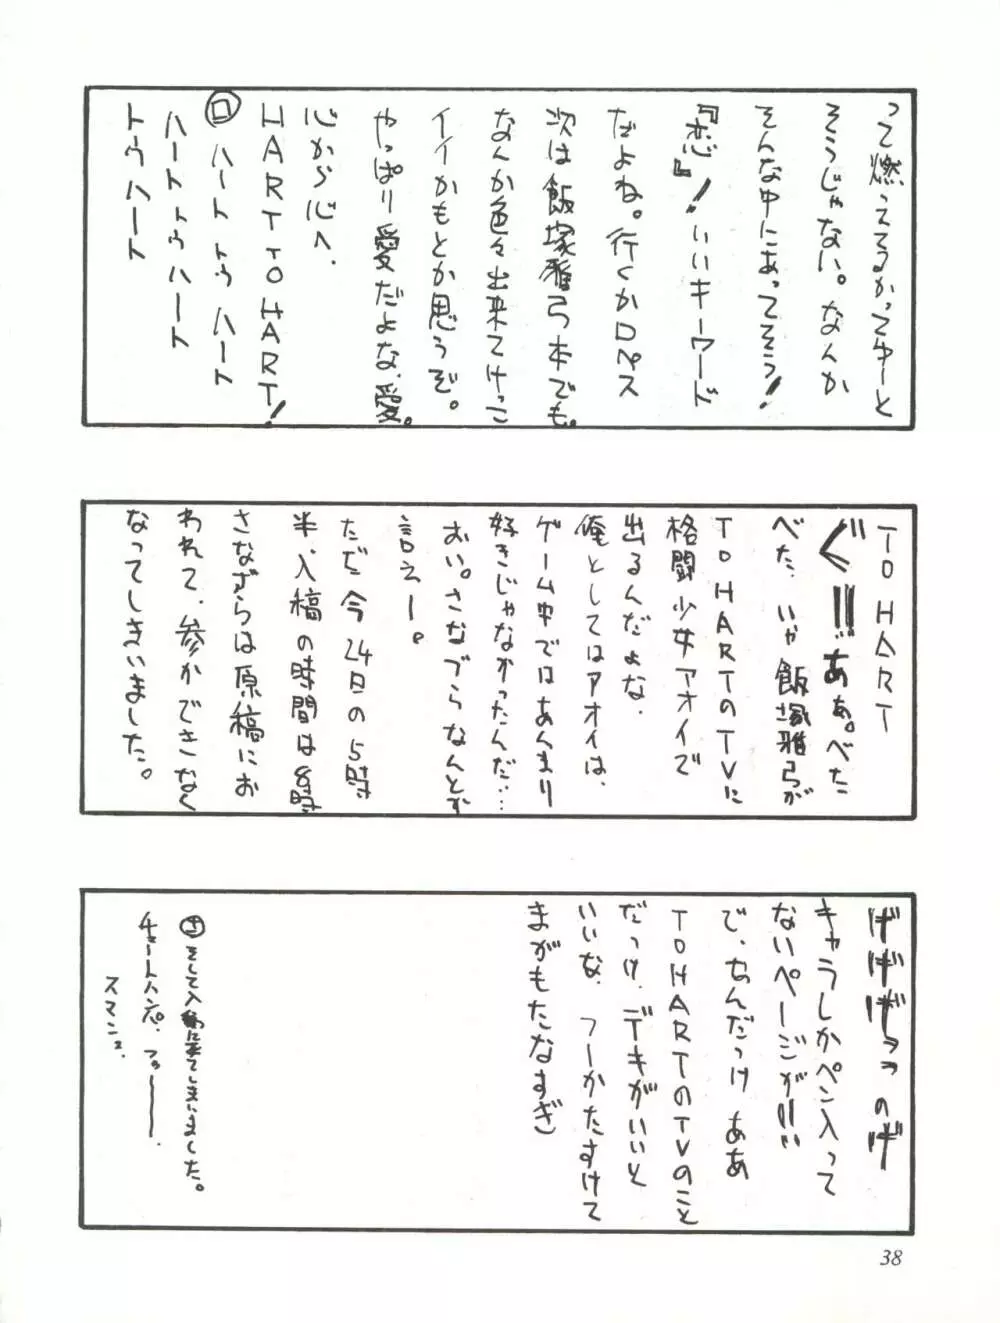 って燃えてるかってゆーと
そうじゃない。なんか
そんな中にあってそう!
『恋』!いいキーワード
だよね。行くかロペス
次は飯塚雅弓本でも。
なんか色々出来てけっこ
イイかもとか思うぞ。
やっぱり愛だよな、愛。
心から心へ、
HART TO HART!
ロ ハート トゥ ハート
ハート トゥ ハート
トゥ ハート
TO HART
ぐ!!!ああ。べた
べた、いや飯塚雅弓が
TO HARTのTVに
格闘少女アオイで
出るんだよな、
俺としてはアオイは、
ゲーム中ではあんまり
好きじゃなかったんだ…
おい。さなづらなんとか
言えー。
ただ今24日の5時
半、入稿の時間は8時
さなづらは原稿にお
われて、参かできなく
なってしまいました。
げげげげっっ のげ
キャラしかペン入って
ないページが!!!
で、なんだっけ ああ
TO HARTのTVのこと
だっけ、デキがいいと
いいな、フーかたすけて
まがもたなすぎ
そして入稿に来てしまいました。
チョートハンパ、フゥーー、
スマンヌ、
38